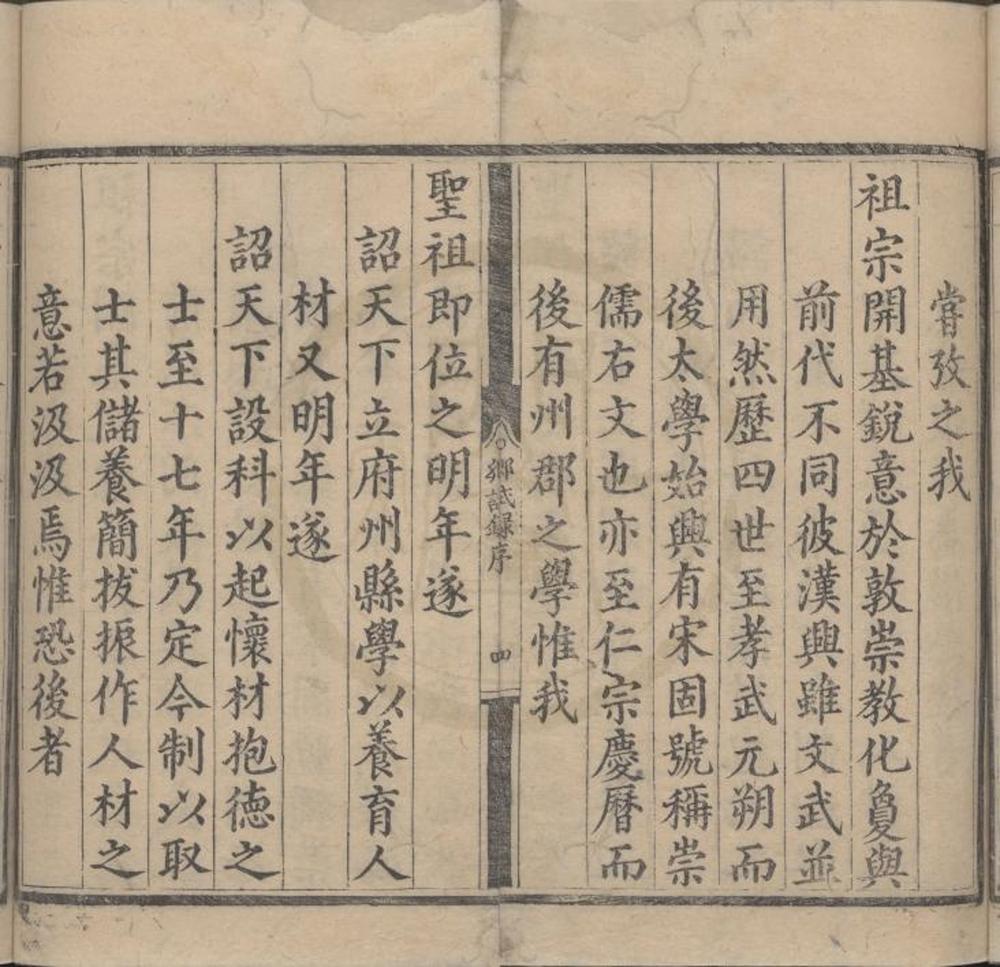 嘗攷之我
祖宗開基銳意於敦崇教化敻與
前代不同彼漢興雖文武並
用然歷四世至孝武元朔而
後太學始興有宋固號稱崇
儒右文也亦至仁宗慶曆而
後有州郡之學惟我
鄉試錄序
四
聖祖即位之明年遂
詔天下立府州縣學以養育人
材又明年遂
詔天下設科以起懷材抱德之
士至十七年乃定今制以取
士其儲養簡拔振作人材之
意若汲汲焉惟恐後者